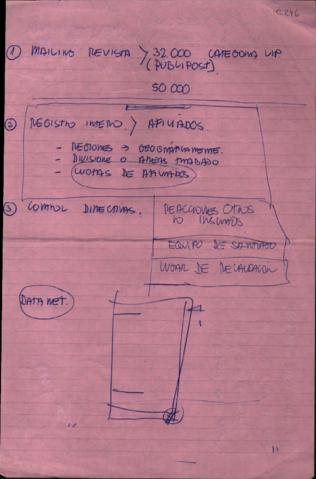 C246
① MAILING REVISTA > 32.000 CATEGORIA VIP
(PUBLIPOST).
50.000
② REGISTRO INTERNO. > AFILIADOS.
- REGIONES → GEOGRAFICAMENTE.
- DIVISIONES O AREAS TRABAJO
- CUOTAS DE AFILIADOS
③ CONTROL DIRECTIVAS.
RELACIONES OTROS
EQUIPO DE
LUGAR DE RECAUDACION
DATA NET.